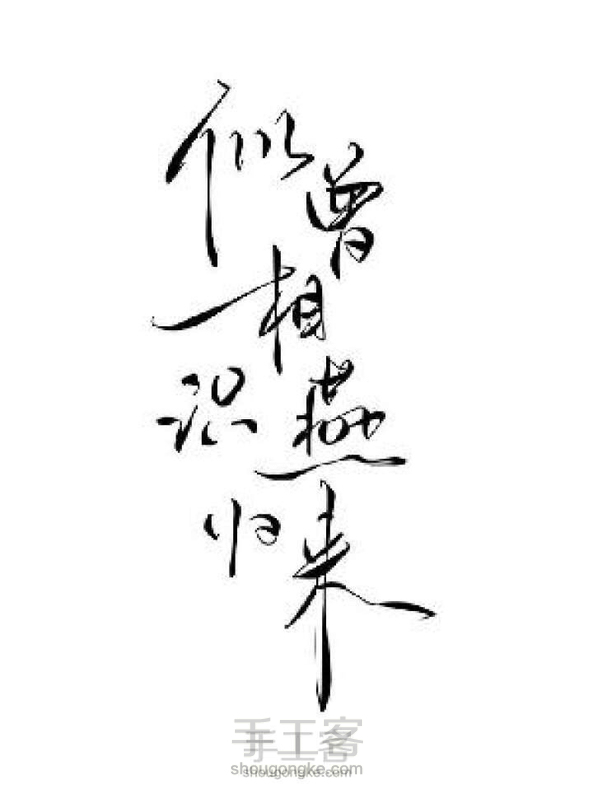 似曾相识燕归来
手工客
shougongke.com